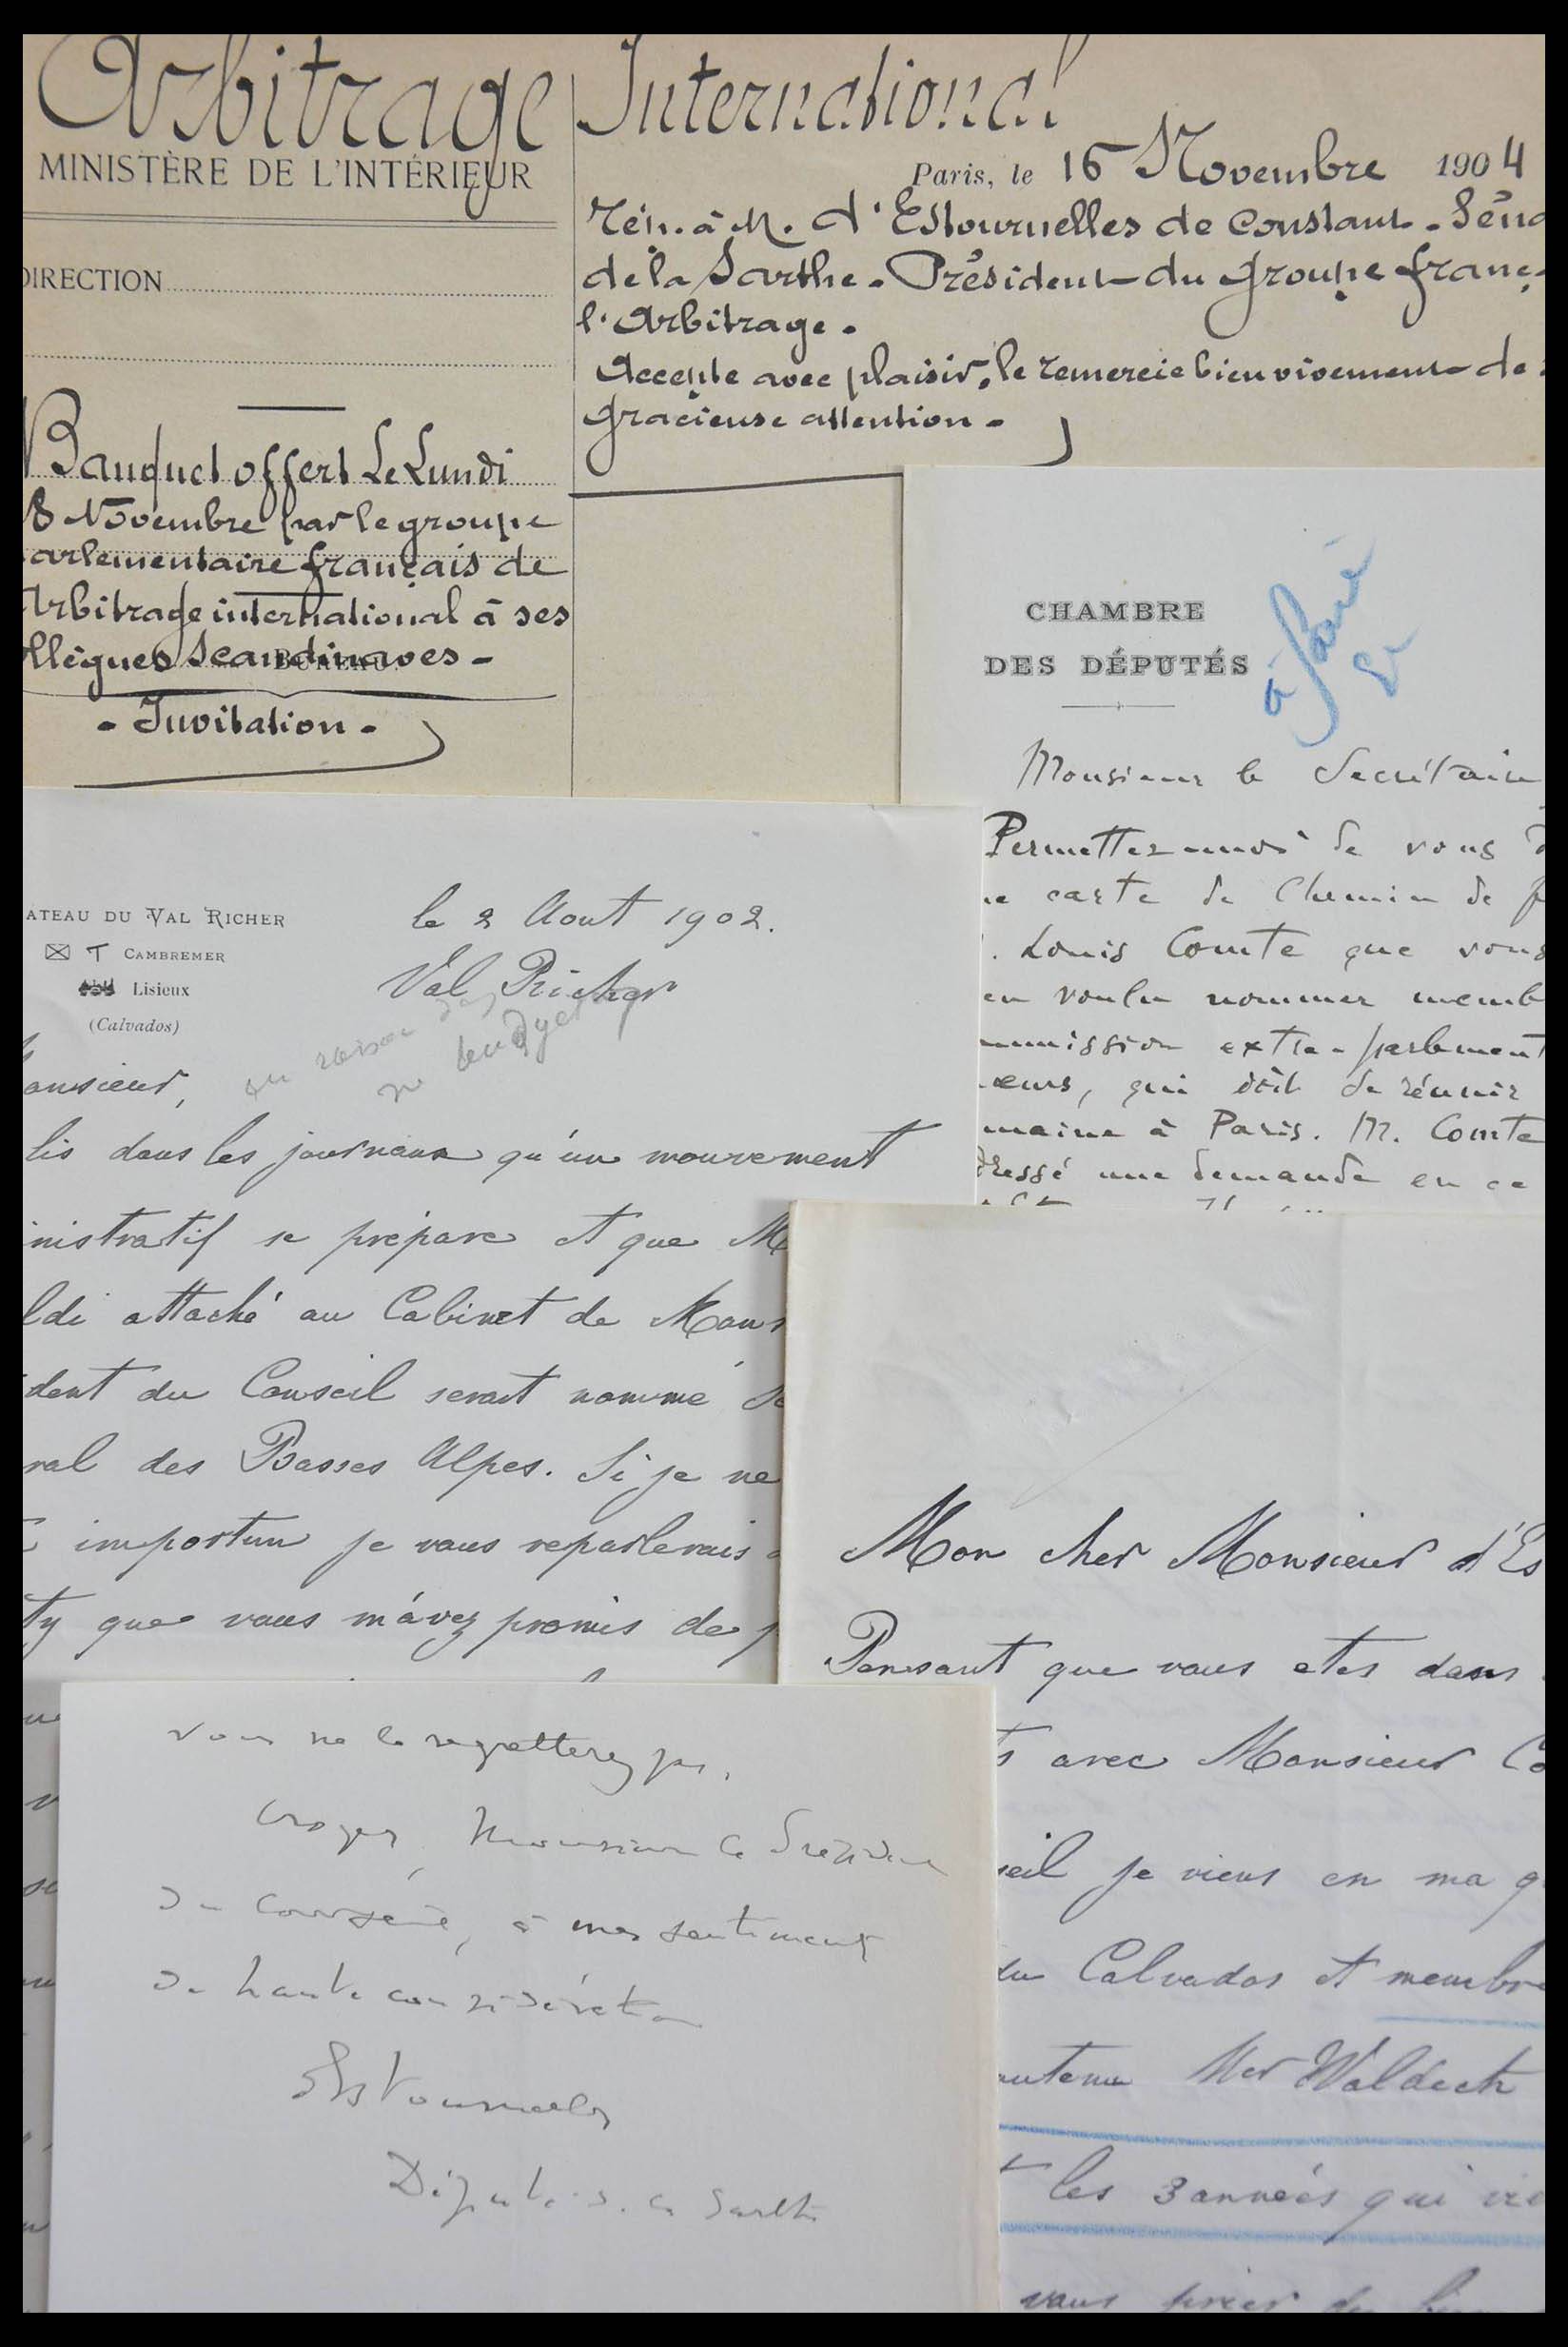 Arbitrage International
MINISTÈRE DE L'INTÉRIEUR
Paris, le 16 Novembre 1904
DIRECTION
Rép. à M. d'Estournelles de Constant. Séna
de la Sarthe. Président du Groupe franç.
l'Arbitrage.
Accepte avec plaisir, le remercie bien vivement de
gracieuse attention.
Banquet offert Le Lundi
8 Novembre par le groupe
arlementaire français de
Arbitrage international à ses
ollègues Scandinaves.
BUREAU
- Invitation -
CHAMBRE
DES DÉPUTÉS
à faire
Monsieur le Secrétaire
Permettez-moi de vous d
ne carte de Chemin de f
. Louis Comte que vous
en voulu nommer memb
mmission extra-parlement
œurs, qui doit se réunir
maine à Paris. M. Comte
dressé une demande en ce
ATEAU DU VAL RICHER
CAMBREMER
Lisieux
(Calvados)
le 2 Aout 1902.
Val Richer
onsieur,
lis dans les journaux qu'un mouvement
inistratif se prépare et que M
ldi attaché au Cabinet de Mons
dent du Conseil serait nommé Se
ral des Basses Alpes. Si je ne
importun je vous reparlerais
ty que vous m'avez promis de p
Mon cher Monsieur d'Es
Pensant que vous etes dans
ts avec Monsieur Co
seil je viens en ma q
du Calvados et membre
outenu Mer Waldeck
les 3 années qui vi
vous prier de
vous ne le regretterez pas.
Croyez, Monsieur le Président
du Conseil, à mes sentiments
de haute considération
d'Estournelles
Député de la Sarthe